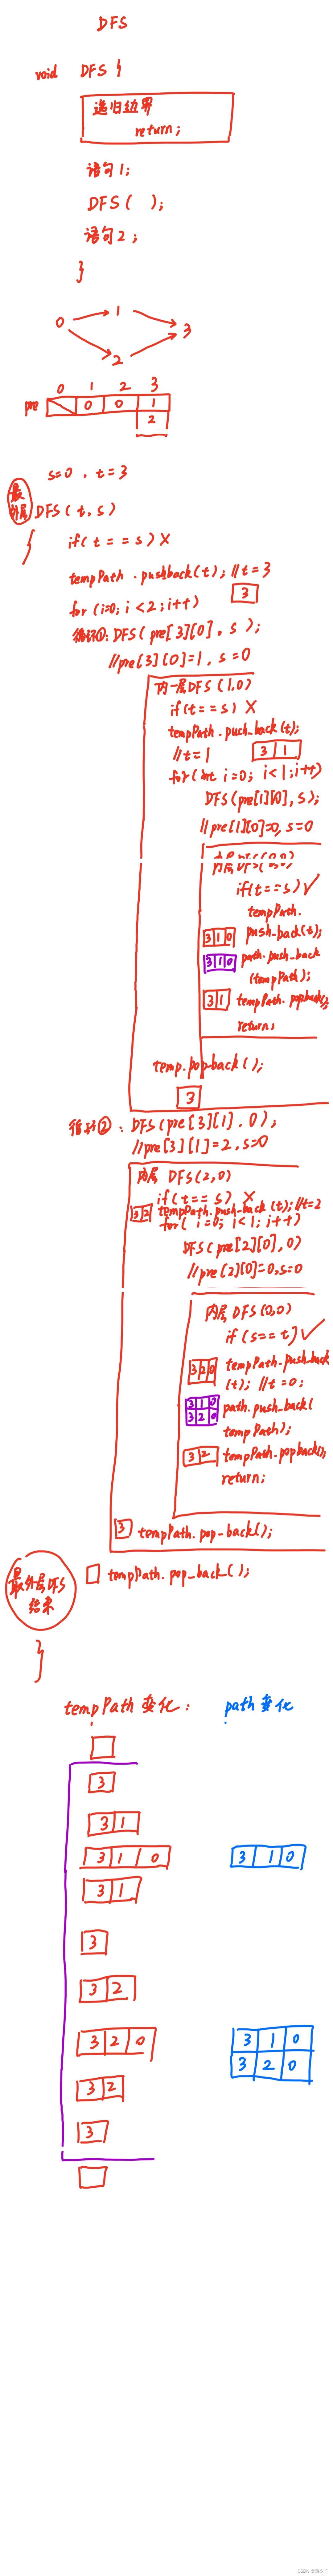 DFS
void DFS {
递归边界
return;
语句1;
DFS( );
语句2;
}
0 1 2 3
0 1 2 3
pre 0 0 1
2
s=0, t=3
最外层 DFS(t,s)
{
if(t==s) X
tempPath.pushback(t); //t=3
3
for(i=0; i<2; i++)
循环①: DFS(pre[3][0], s);
//pre[3][0]=1, s=0
内一层DFS(1,0)
if(t==s) X
tempPath.push_back(t);
//t=1 3 1
for(int i=0; i<1; i++)
DFS(pre[1][0], s);
//pre[1][0]=0, s=0
内层DFS(0,0)
if(t==s) ✓
tempPath.
3 1 0 push_back(t);
3 1 0 path.push_back
(tempPath);
3 1 tempPath.popback();
return;
temp.popback();
3
循环②: DFS(pre[3][1], 0);
//pre[3][1]=2, s=0
内层 DFS(2,0)
if(t==s) X
3 2 tempPath.push_back(t); //t=2
for( i=0; i<1; i++)
DFS(pre[2][0], 0)
//pre[2][0]=0, s=0
内层 DFS(0,0)
if(s==t) ✓
3 2 0 tempPath.push_back
(t); //t=0;
3 1 0 path.push_back(
3 2 0 tempPath);
3 2 tempPath.popback();
return;
3 tempPath.pop_back();
最外层DFS tempPath.pop_back();
结束
}
tempPath变化: path变化
3
3 1
3 1 0 3 1 0
3 1
3
3 2
3 2 0 3 1 0
3 2 0
3 2
3